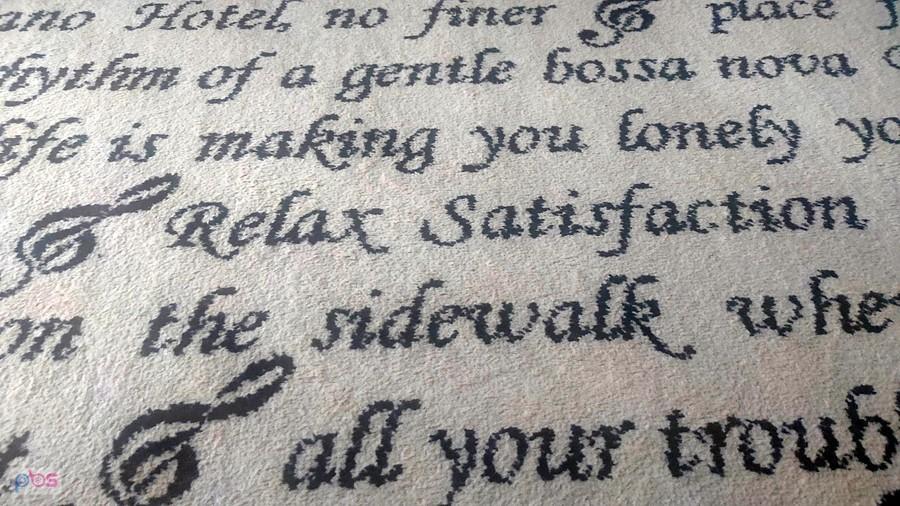 ano Hotel, no finer place
hythm of a gentle bossa nova
ife is making you lonely yo
Relax Satisfaction
on the sidewalk whe
t all your troubl
pbs